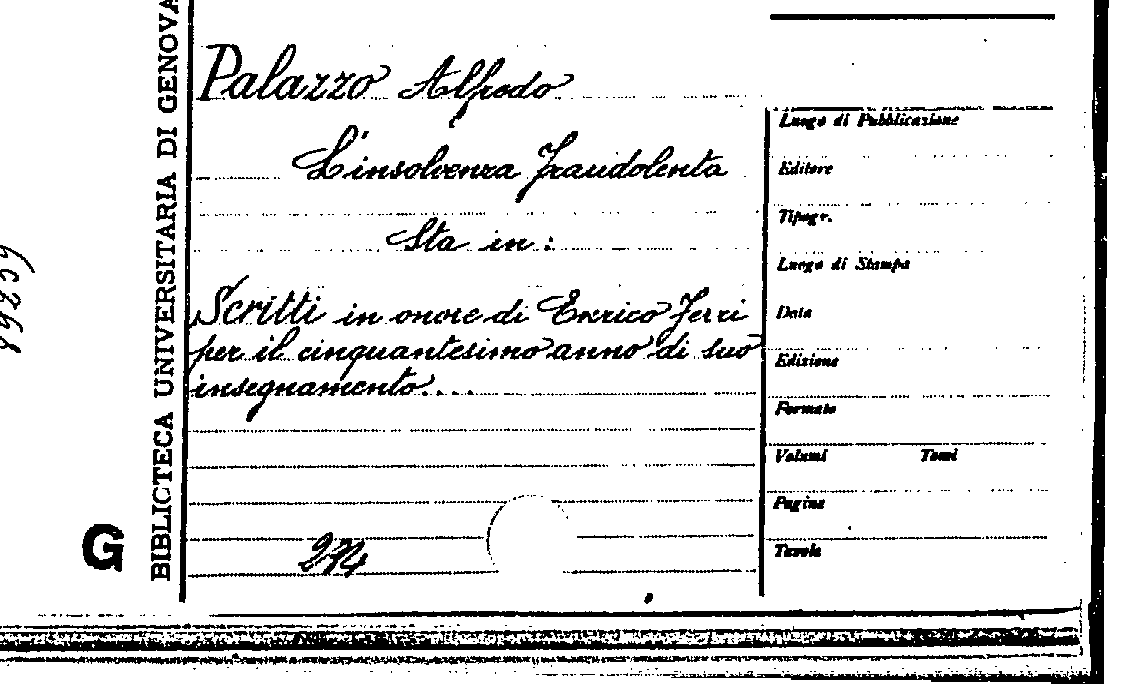 BIBLIOTECA UNIVERSITARIA DI GENOVA
G
Palazzo Alfredo
L'insolvenza fraudolenta
Sta in:
Scritti in onore di Enrico Ferri
per il cinquantesimo anno di suo
insegnamento....
Luogo di Pubblicazione
Editore
Tipogr.
Luogo di Stampa
Data
Edizione
Formato
Volumi Tomi
Pagine
Tavole